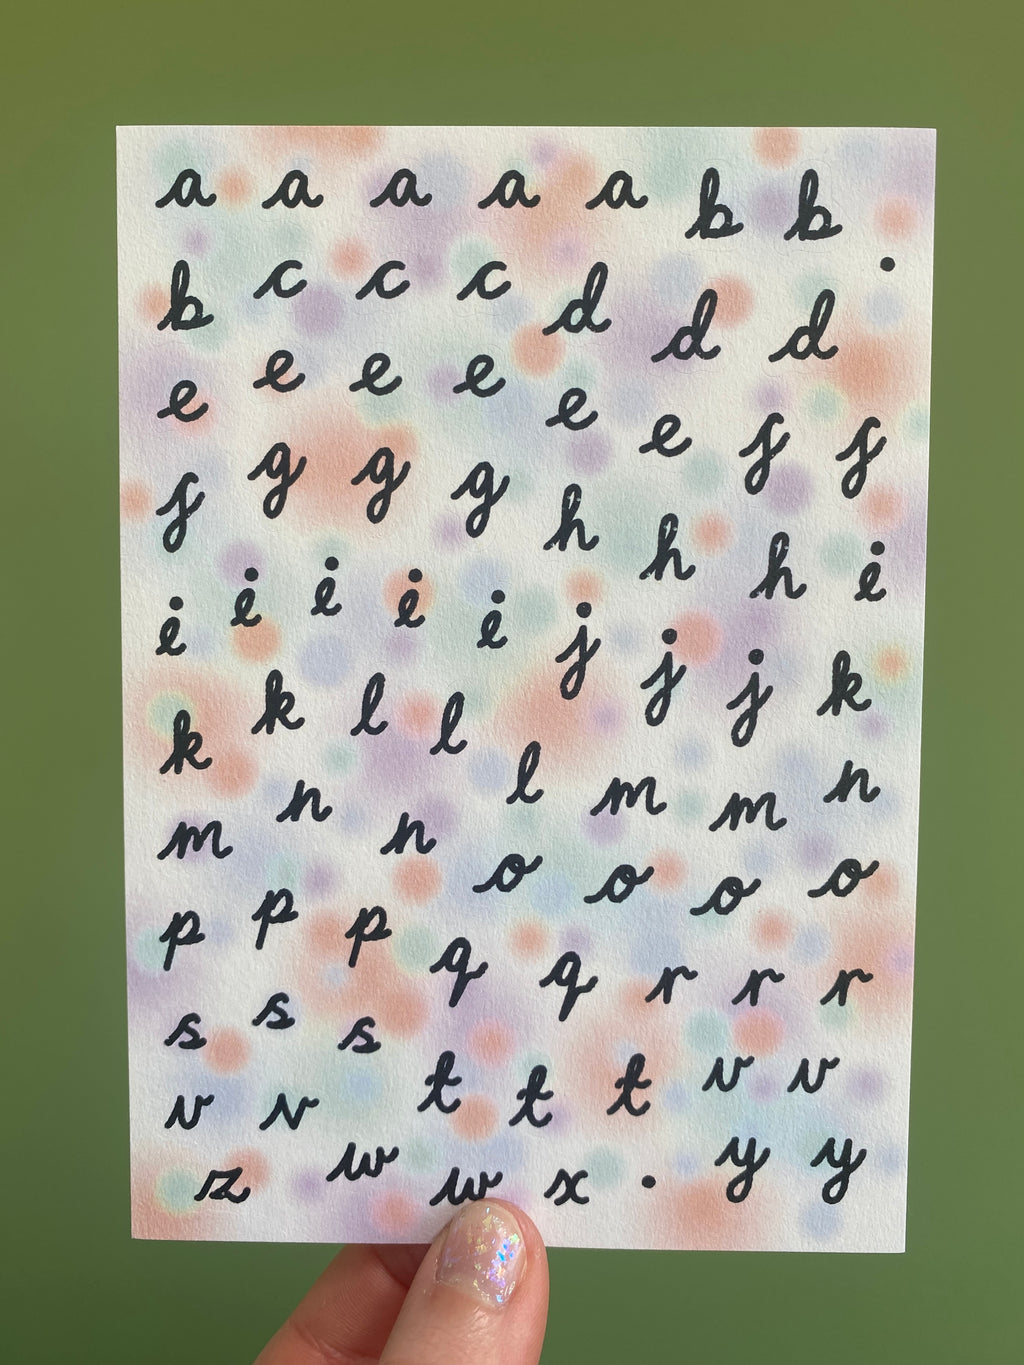 a a a a a b b .
b c c c d d d
e e e e e e f f
f g g g h h h i
i i i i i j j j k
k k l l l m m n
m n n o o o o
p p p q q r r r
s s s t t t v v
v v
z w w x . y y